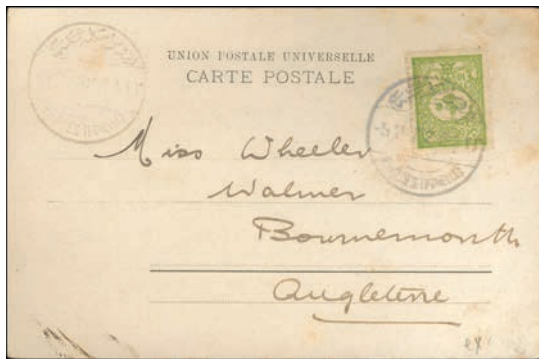 UNION POSTALE UNIVERSELLE
CARTE POSTALE
Miss Wheeler
Walmer
Bournemouth
Angleterre